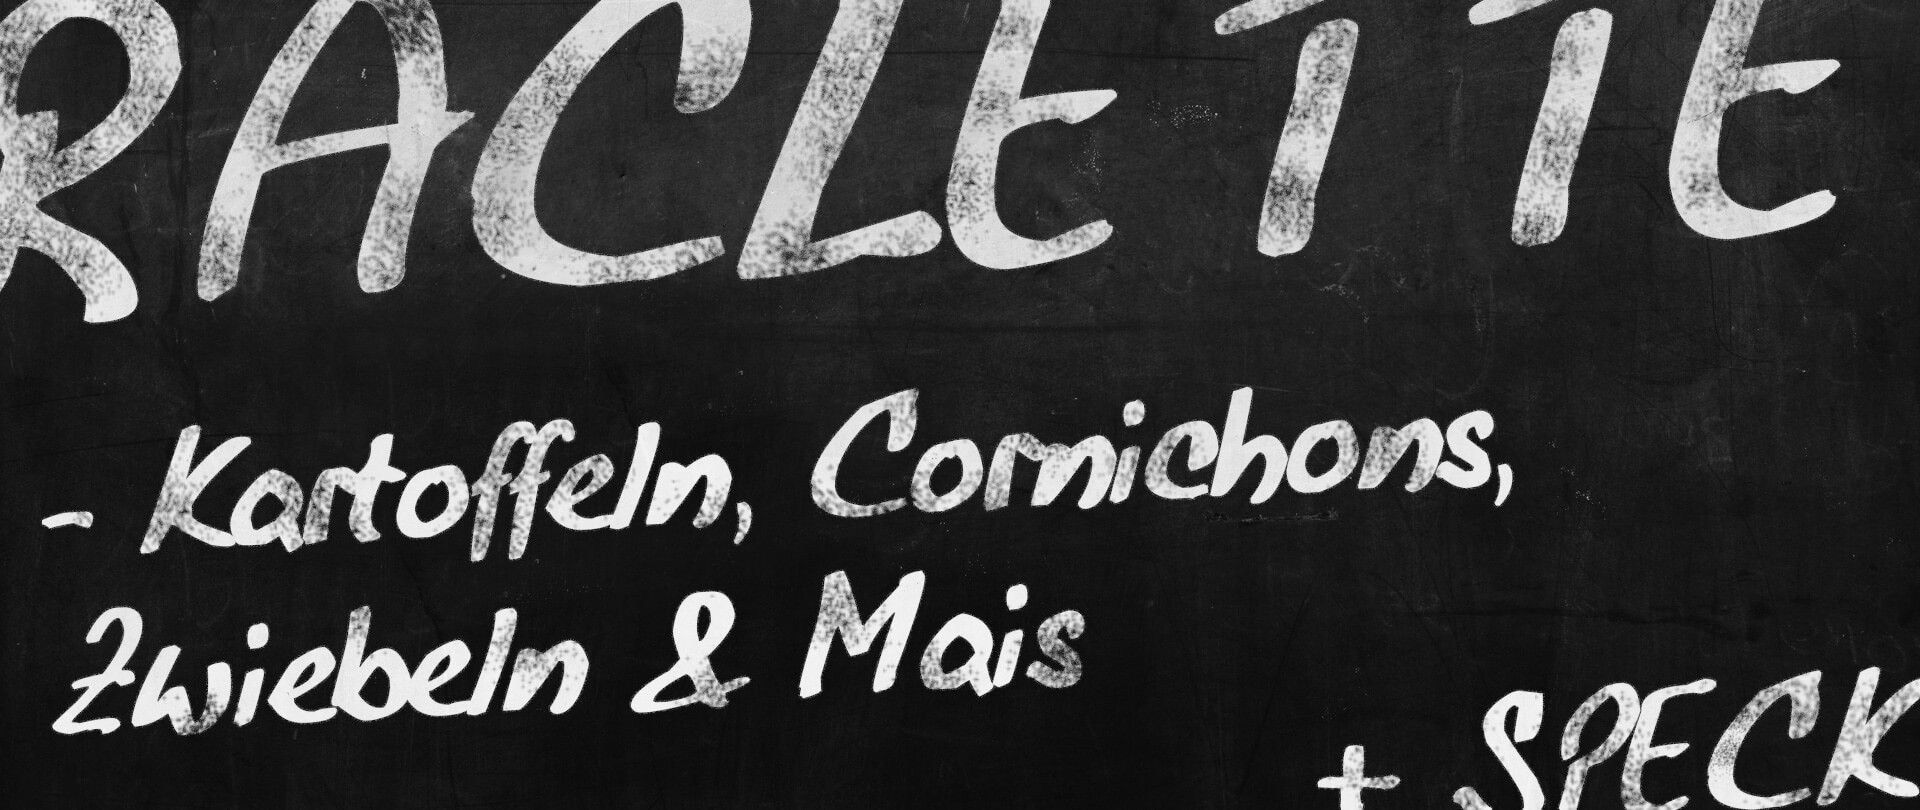 RACLETTE
- Kartoffeln, Cornichons,
Zwiebeln & Mais
+ SPECK